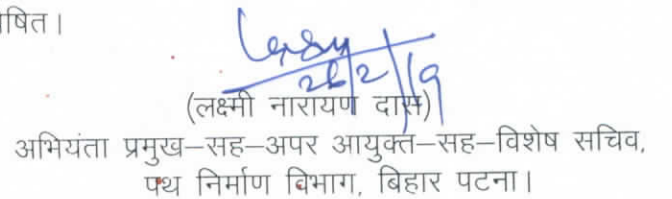 षित।
26/2/19
(लक्ष्मी नारायण दास)
अभियंता प्रमुख–सह–अपर आयुक्त–सह–विशेष सचिव,
पथ निर्माण विभाग, बिहार पटना।